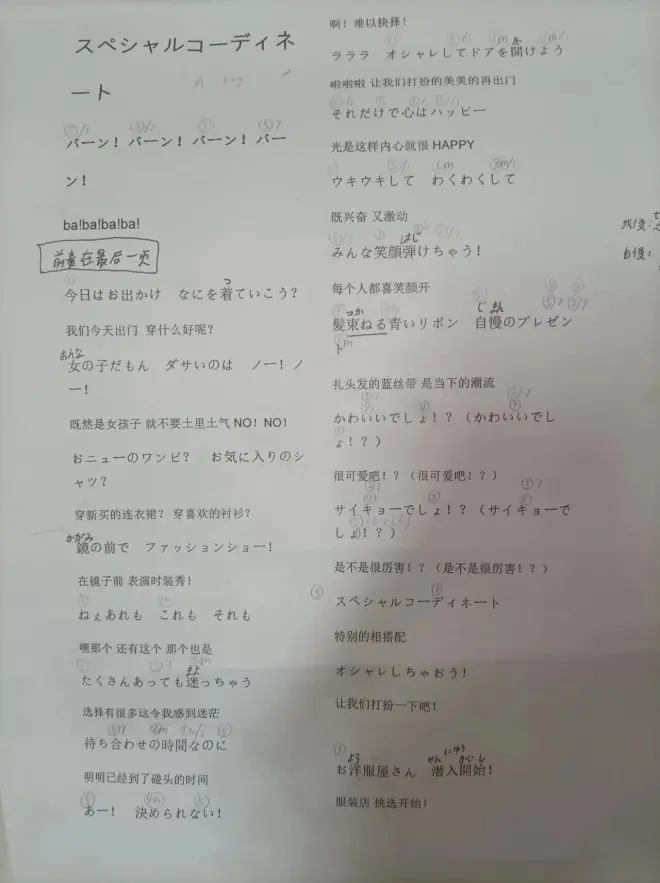 スペシャルコーディネ
ート
A
バーン！ バーン！ バーン！ バー
ン！
ba!ba!ba!ba!
前奏在最后一页
っ
今日はお出かけ　なにを着ていこう？
我们今天出门 穿什么好呢？
おんな
女の子だもん　ダサいのは　ノー！ノ
ー！
既然是女孩子 就不要土里土气 NO！NO！
おニューのワンピ？　お気に入りのシ
ャツ？
穿新买的连衣裙？ 穿喜欢的衬衫？
かがみ
鏡の前で　ファッションショー！
在镜子前 表演时装秀！
ねぇあれも　これも　それも
嘿那个 还有这个 那个也是
まよ
たくさんあっても迷っちゃう
选择有很多这令我感到迷茫
待ち合わせの時間なのに
明明已经到了碰头的时间
あー！　決められない！
啊！ 难以抉择！
あ
ラララ　オシャレしてドアを開けよう
啦啦啦 让我们打扮的美美的再出门
それだけで心はハッピー
光是这样内心就很 HAPPY
ウキウキして　わくわくして
既兴奋 又激动
はじ
みんな笑顔弾けちゃう！
每个人都喜笑颜开
つか　じまん
髪束ねる青いリボン　自慢のプレゼン
ト
扎头发的蓝丝带 是当下的潮流
かわいいでしょ！？（かわいいでし
ょ！？）
很可爱吧！？（很可爱吧！？）
サイキョーでしょ！？（サイキョーで
しょ！？）
是不是很厉害！？（是不是很厉害！？）
スペシャルコーディネート
特别的相搭配
オシャレしちゃおう！
让我们打扮一下吧！
よう　せんにゅうかいし
お洋服屋さん　潜入開始！
服装店 挑选开始！
自慢：